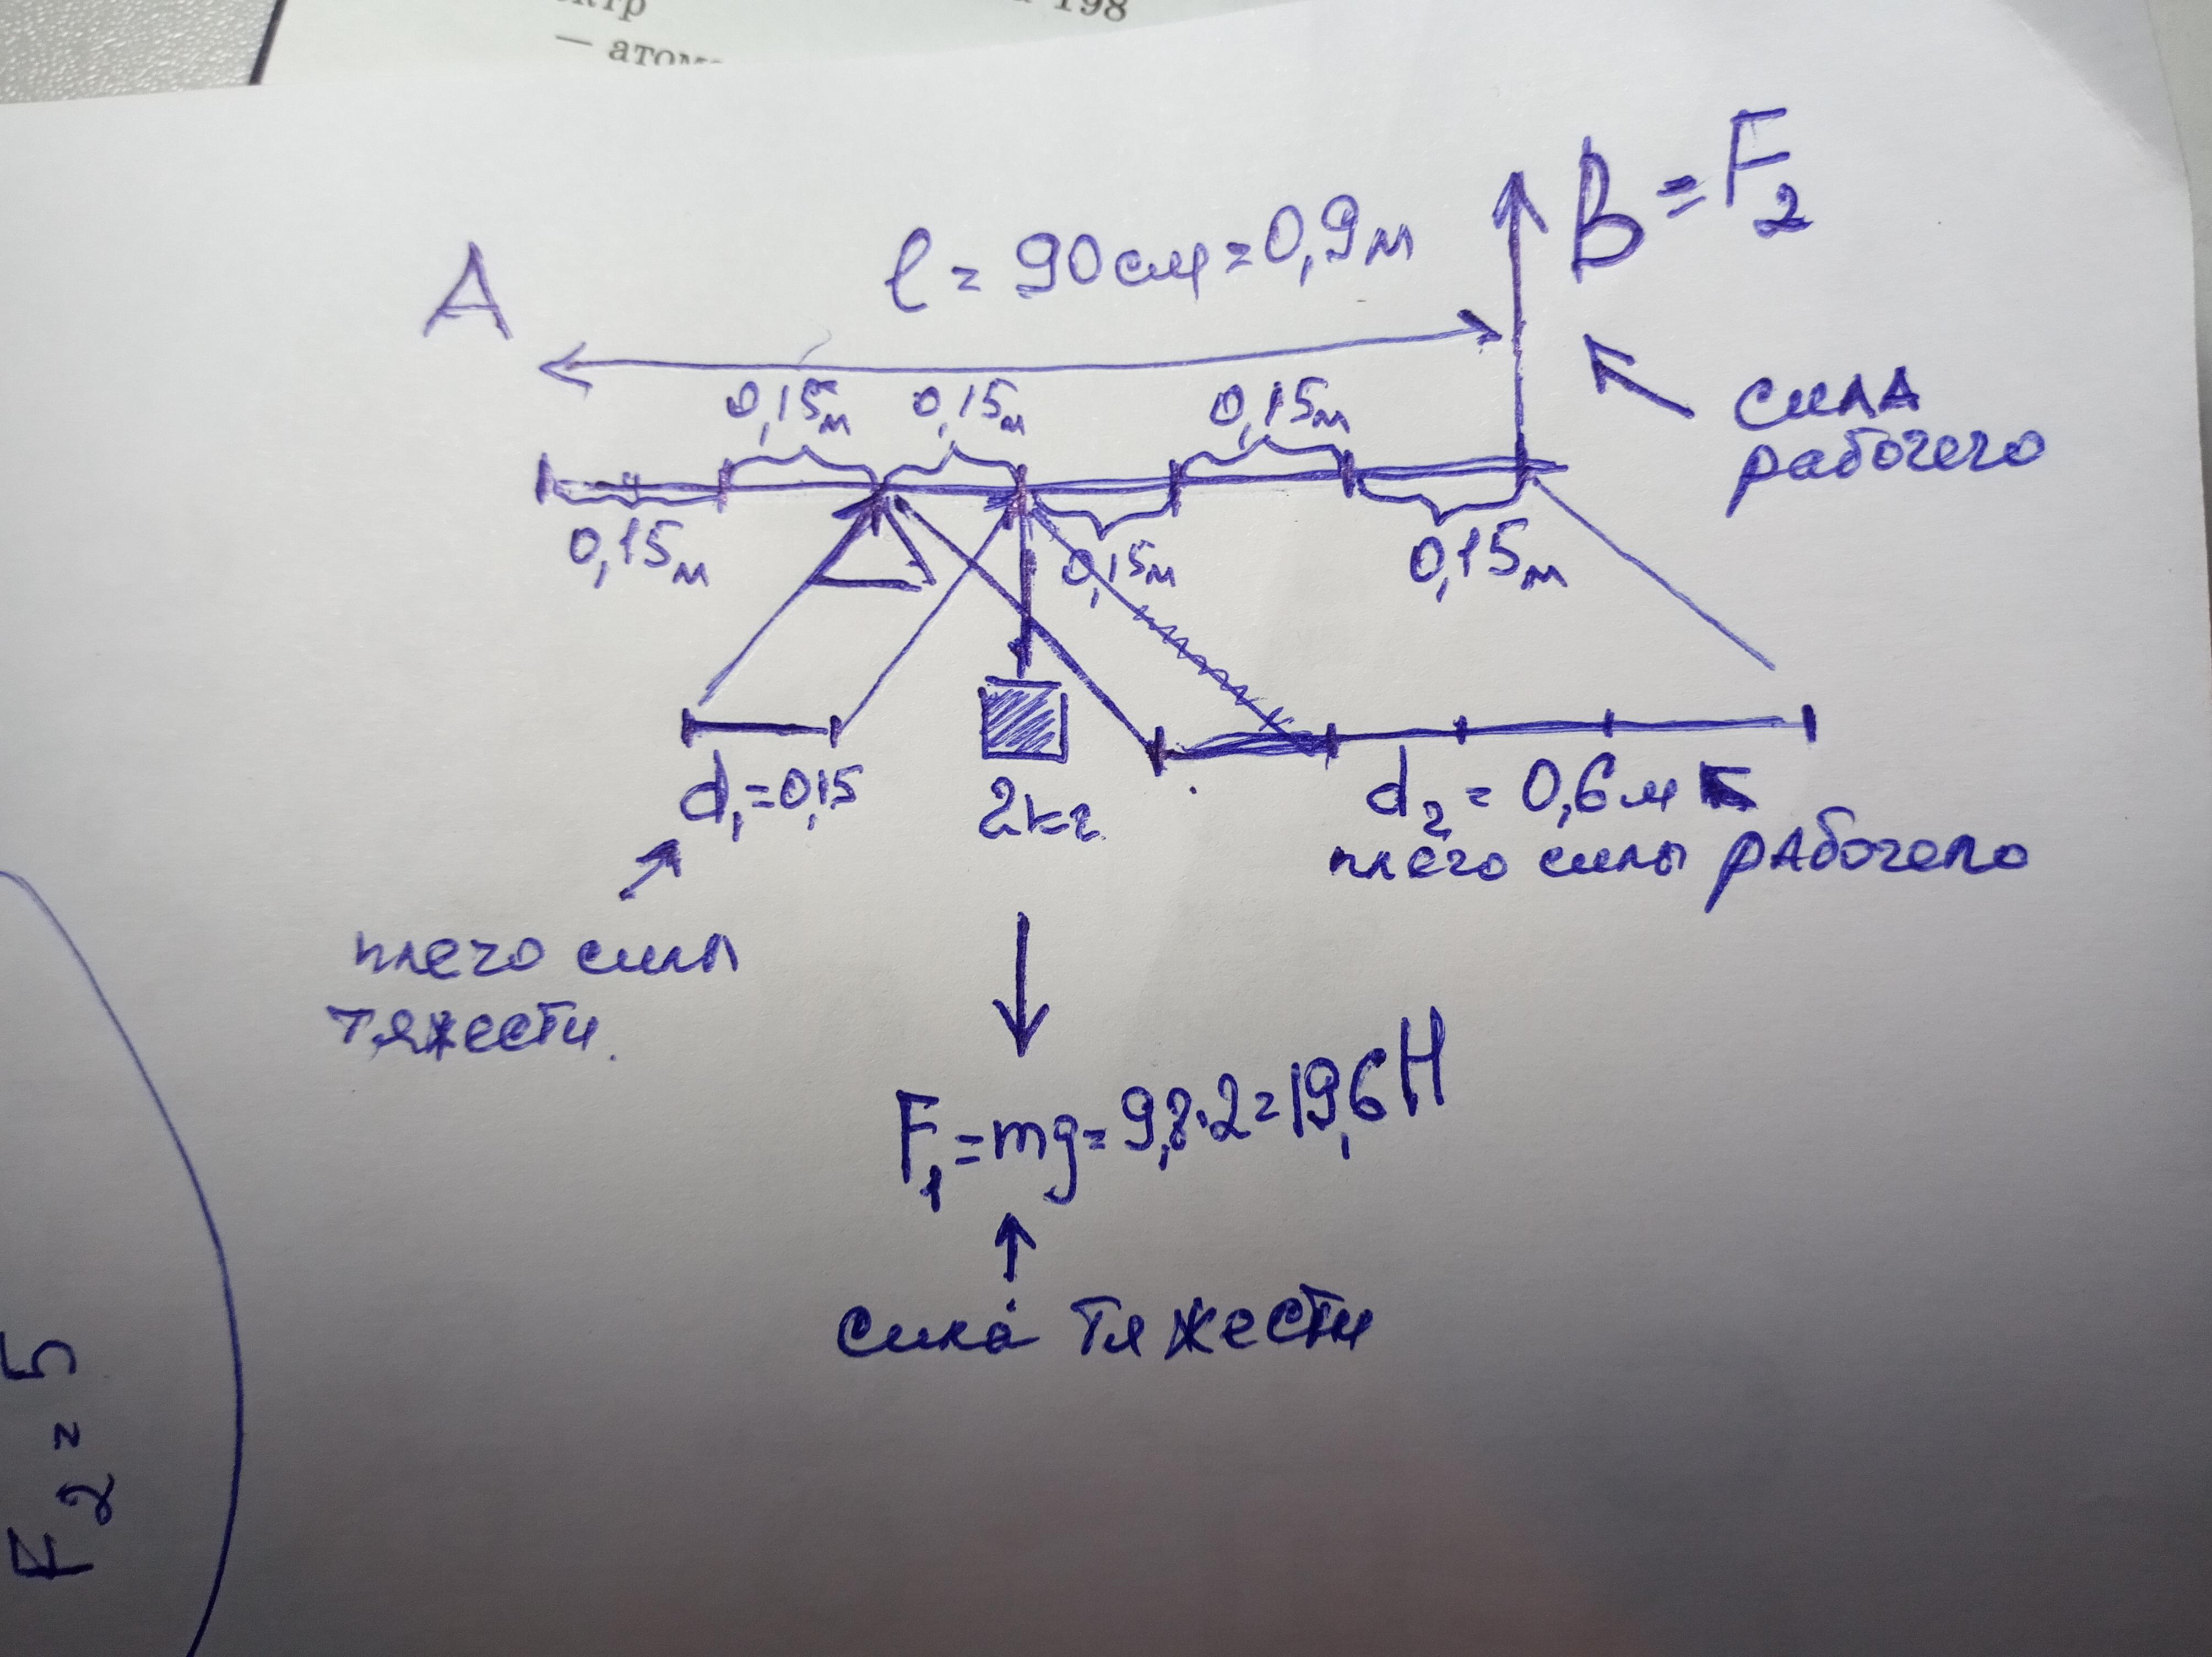 198
— атом
A
ℓ = 90 см = 0,9 м
B = F₂
сила
рабочего
0,15 м 0,15 м 0,15 м
0,15 м 0,15 м 0,15 м
d₁ = 0,15
2 кг
d₂ = 0,6 м
плечо силы рабочего
плечо силы
тяжести.
F₁ = mg = 9,8·2 = 19,6 Н
сила тяжести
F₂ = 5